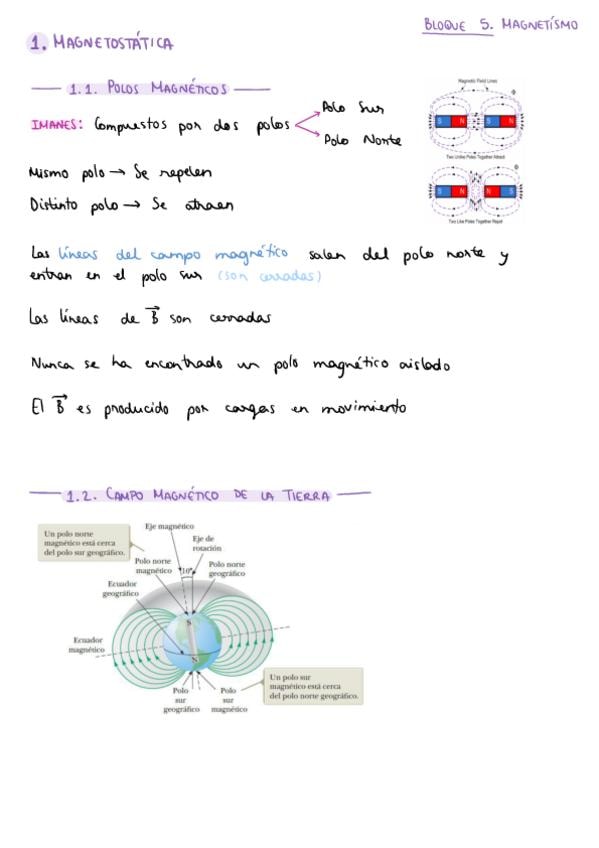 BLOQUE 5. MAGNETÍSMO
1. MAGNETOSTÁTICA
1.1. POLOS MAGNÉTICOS
Magnetic Field Lines
S N S N
Two Unlike Poles Together Attract
S N N S
Two Like Poles Together Repel
IMANES: Compuestos por dos polos
Polo Sur
Polo Norte
Mismo polo → Se repelen
Distinto polo → Se atraen
Las líneas del campo magnético salen del polo norte y
entran en el polo sur (son cerradas)
Las líneas de B⃗ son cerradas
Nunca se ha encontrado un polo magnético aislado
El B⃗ es producido por cargas en movimiento
1.2. CAMPO MAGNÉTICO DE LA TIERRA
Un polo norte
magnético está cerca
del polo sur geográfico.
Eje magnético
Eje de
rotación
Polo norte
magnético
Polo norte
geográfico
Ecuador
geográfico
S
Ecuador
magnético
N
Polo
sur
geográfico
Polo
sur
magnético
Un polo sur
magnético está cerca
del polo norte geográfico.